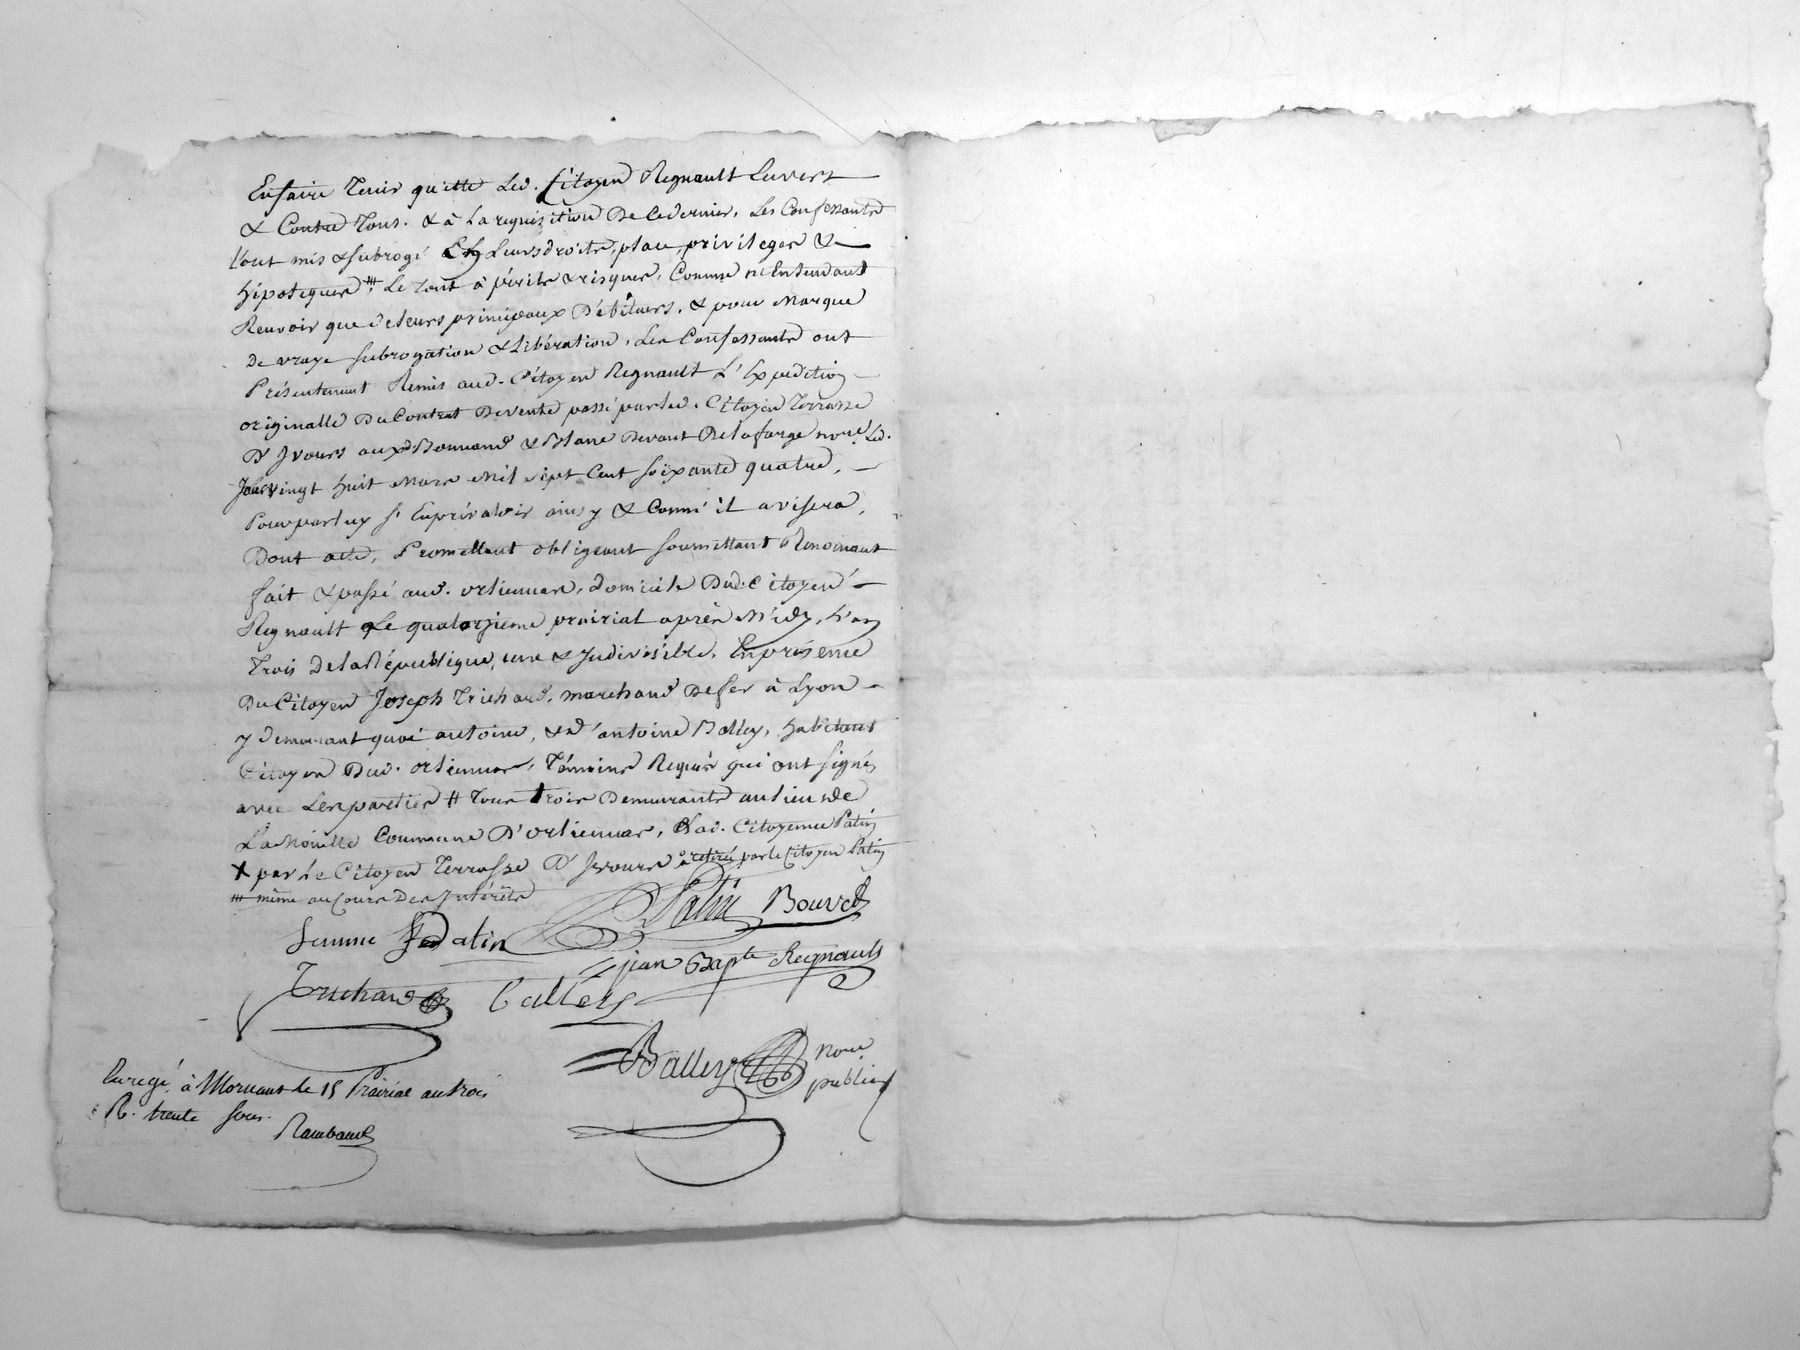 En faire tenir quitte Led. Citoyen Regnault Envers
& Contre Tous. & à La requisition De Ce dernier, Les Confessants
L'ont mis & subrogé En Leurs droits, place, privileges &
hipoteques ''', Le tout à périls & risques, Comme n'Entendant
Revoir que de leurs principaux Débiteurs. & pour Marque
de vraye subrogation & Libération, Les Confessants ont
Présentement Remis aud. Citoyen Regnault L'Expedition
originalle Du Contrat De vente passé par led. Citoyen Terrasse
D'Yvours aux d. Bonnand & Blanc Devant Delafarge nore, Led.
Jour vingt huit Mars Mil sept Cent soixante quatre,
Pour par luy s'En prévaloir ainsy & Comm'il avisera,
Dont acte, Promettant obligeant soumettant Renonçant
fait & passé aud. orlienas, domicile Dud. Citoyen
Regnault Le quatorzieme prairial après Midy, L'an
Trois De la République, une & Indivisible. En présence
Du Citoyen Joseph Trichard, marchand De fer à Lyon
y demeurant quai antoine, & d'antoine Balley, habitant
Citoyen Dud. orlienas, Témoins Requis qui ont signés
avec Les parties # Tous trois Demeurants au lieu De
La Nouille Commune D'orlienas, & lad. Citoyenne Patin
X par Le Citoyen Terrasse D'Yvours o retiré par le Citoyen Patin
''' même au Cours Des Intérêts
Patin Bouvet
femme Patin
jean Bapte Regnault
Trichard Balley
Balley nore
public
Enregé à Mornant le 15 Prairial an trois
R. trente sous.
Rambaud